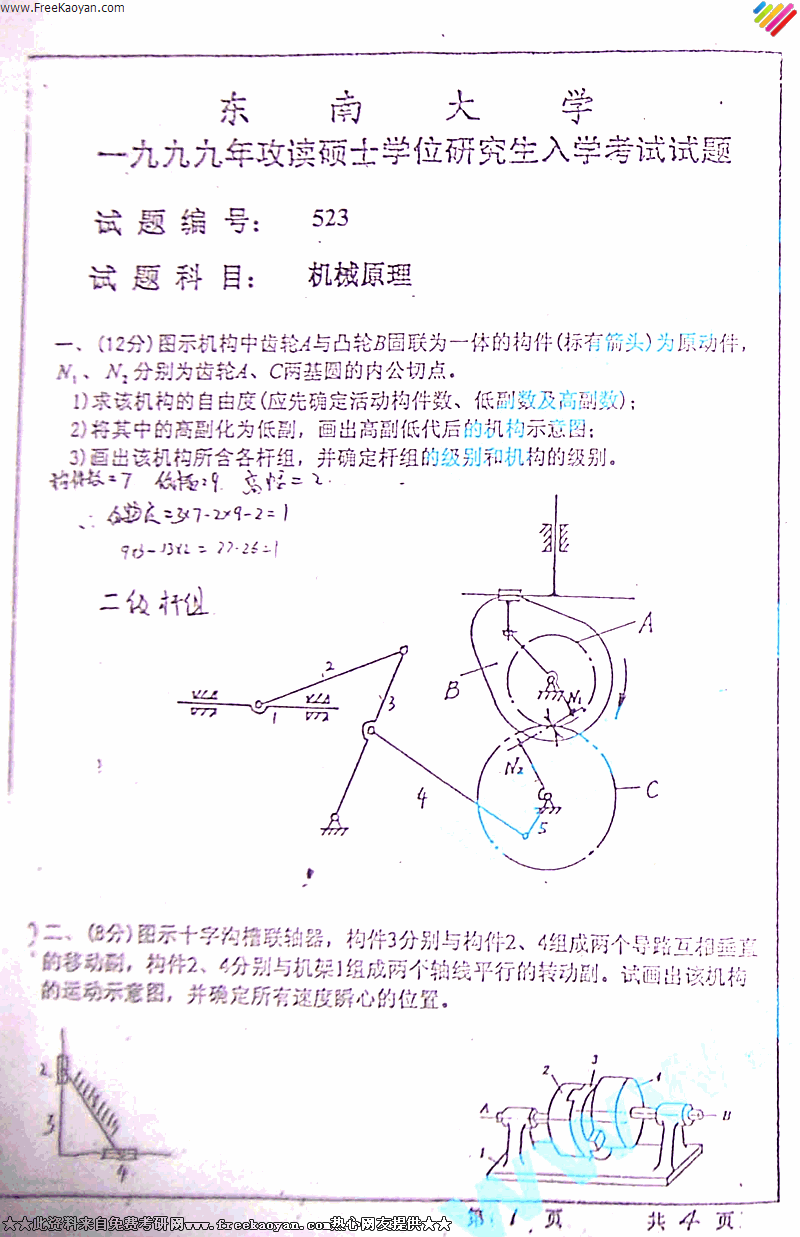 www.FreeKaoyan.com
东 南 大 学
一九九九年攻读硕士学位研究生入学考试试题
试 题 编 号： 523
试 题 科 目： 机械原理
一、(12分)图示机构中齿轮A与凸轮B固联为一体的构件(标有箭头)为原动件，
N₁、N₂分别为齿轮A、C两基圆的内公切点。
1)求该机构的自由度(应先确定活动构件数、低副数及高副数)；
2)将其中的高副化为低副，画出高副低代后的机构示意图；
3)画出该机构所含各杆组，并确定杆组的级别和机构的级别。
构件数=7 低副=9 高副=2
∴ 自由度=3×7-2×9-2=1
二级杆组
A
B
N₁
N₂
C
1
2
3
4
5
二、(8分)图示十字沟槽联轴器，构件3分别与构件2、4组成两个导路互相垂直
的移动副，构件2、4分别与机架1组成两个轴线平行的转动副。试画出该机构
的运动示意图，并确定所有速度瞬心的位置。
2
3
4
2
3
4
A
B
1
第 1 页 共 4 页
★★此资料来自免费考研网www.freekaoyan.com热心网友提供★★